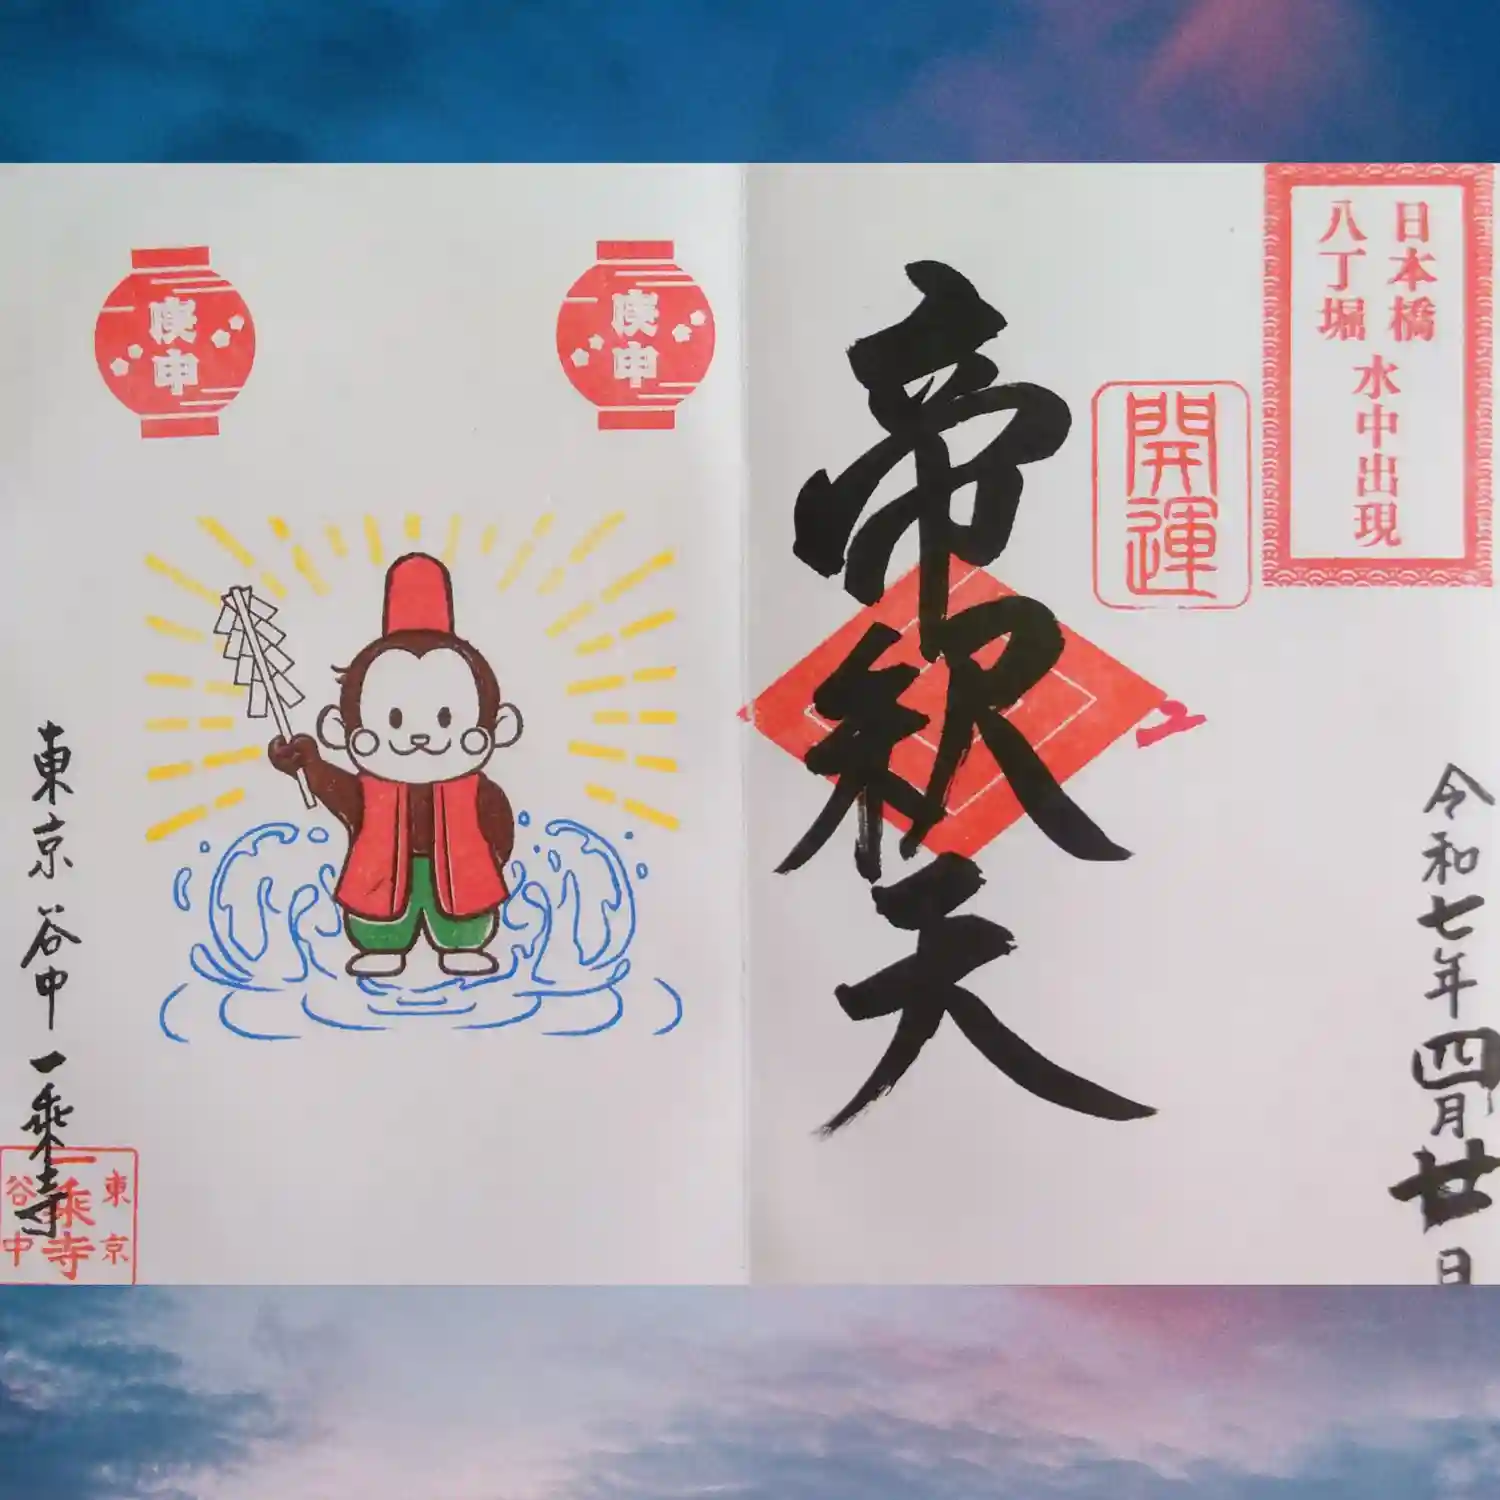 日本橋
八丁堀
水中出現
開運
帝釈天
令和七年四月廿日
庚申
庚申
東京谷中一乗寺
東京
一乗寺
谷中